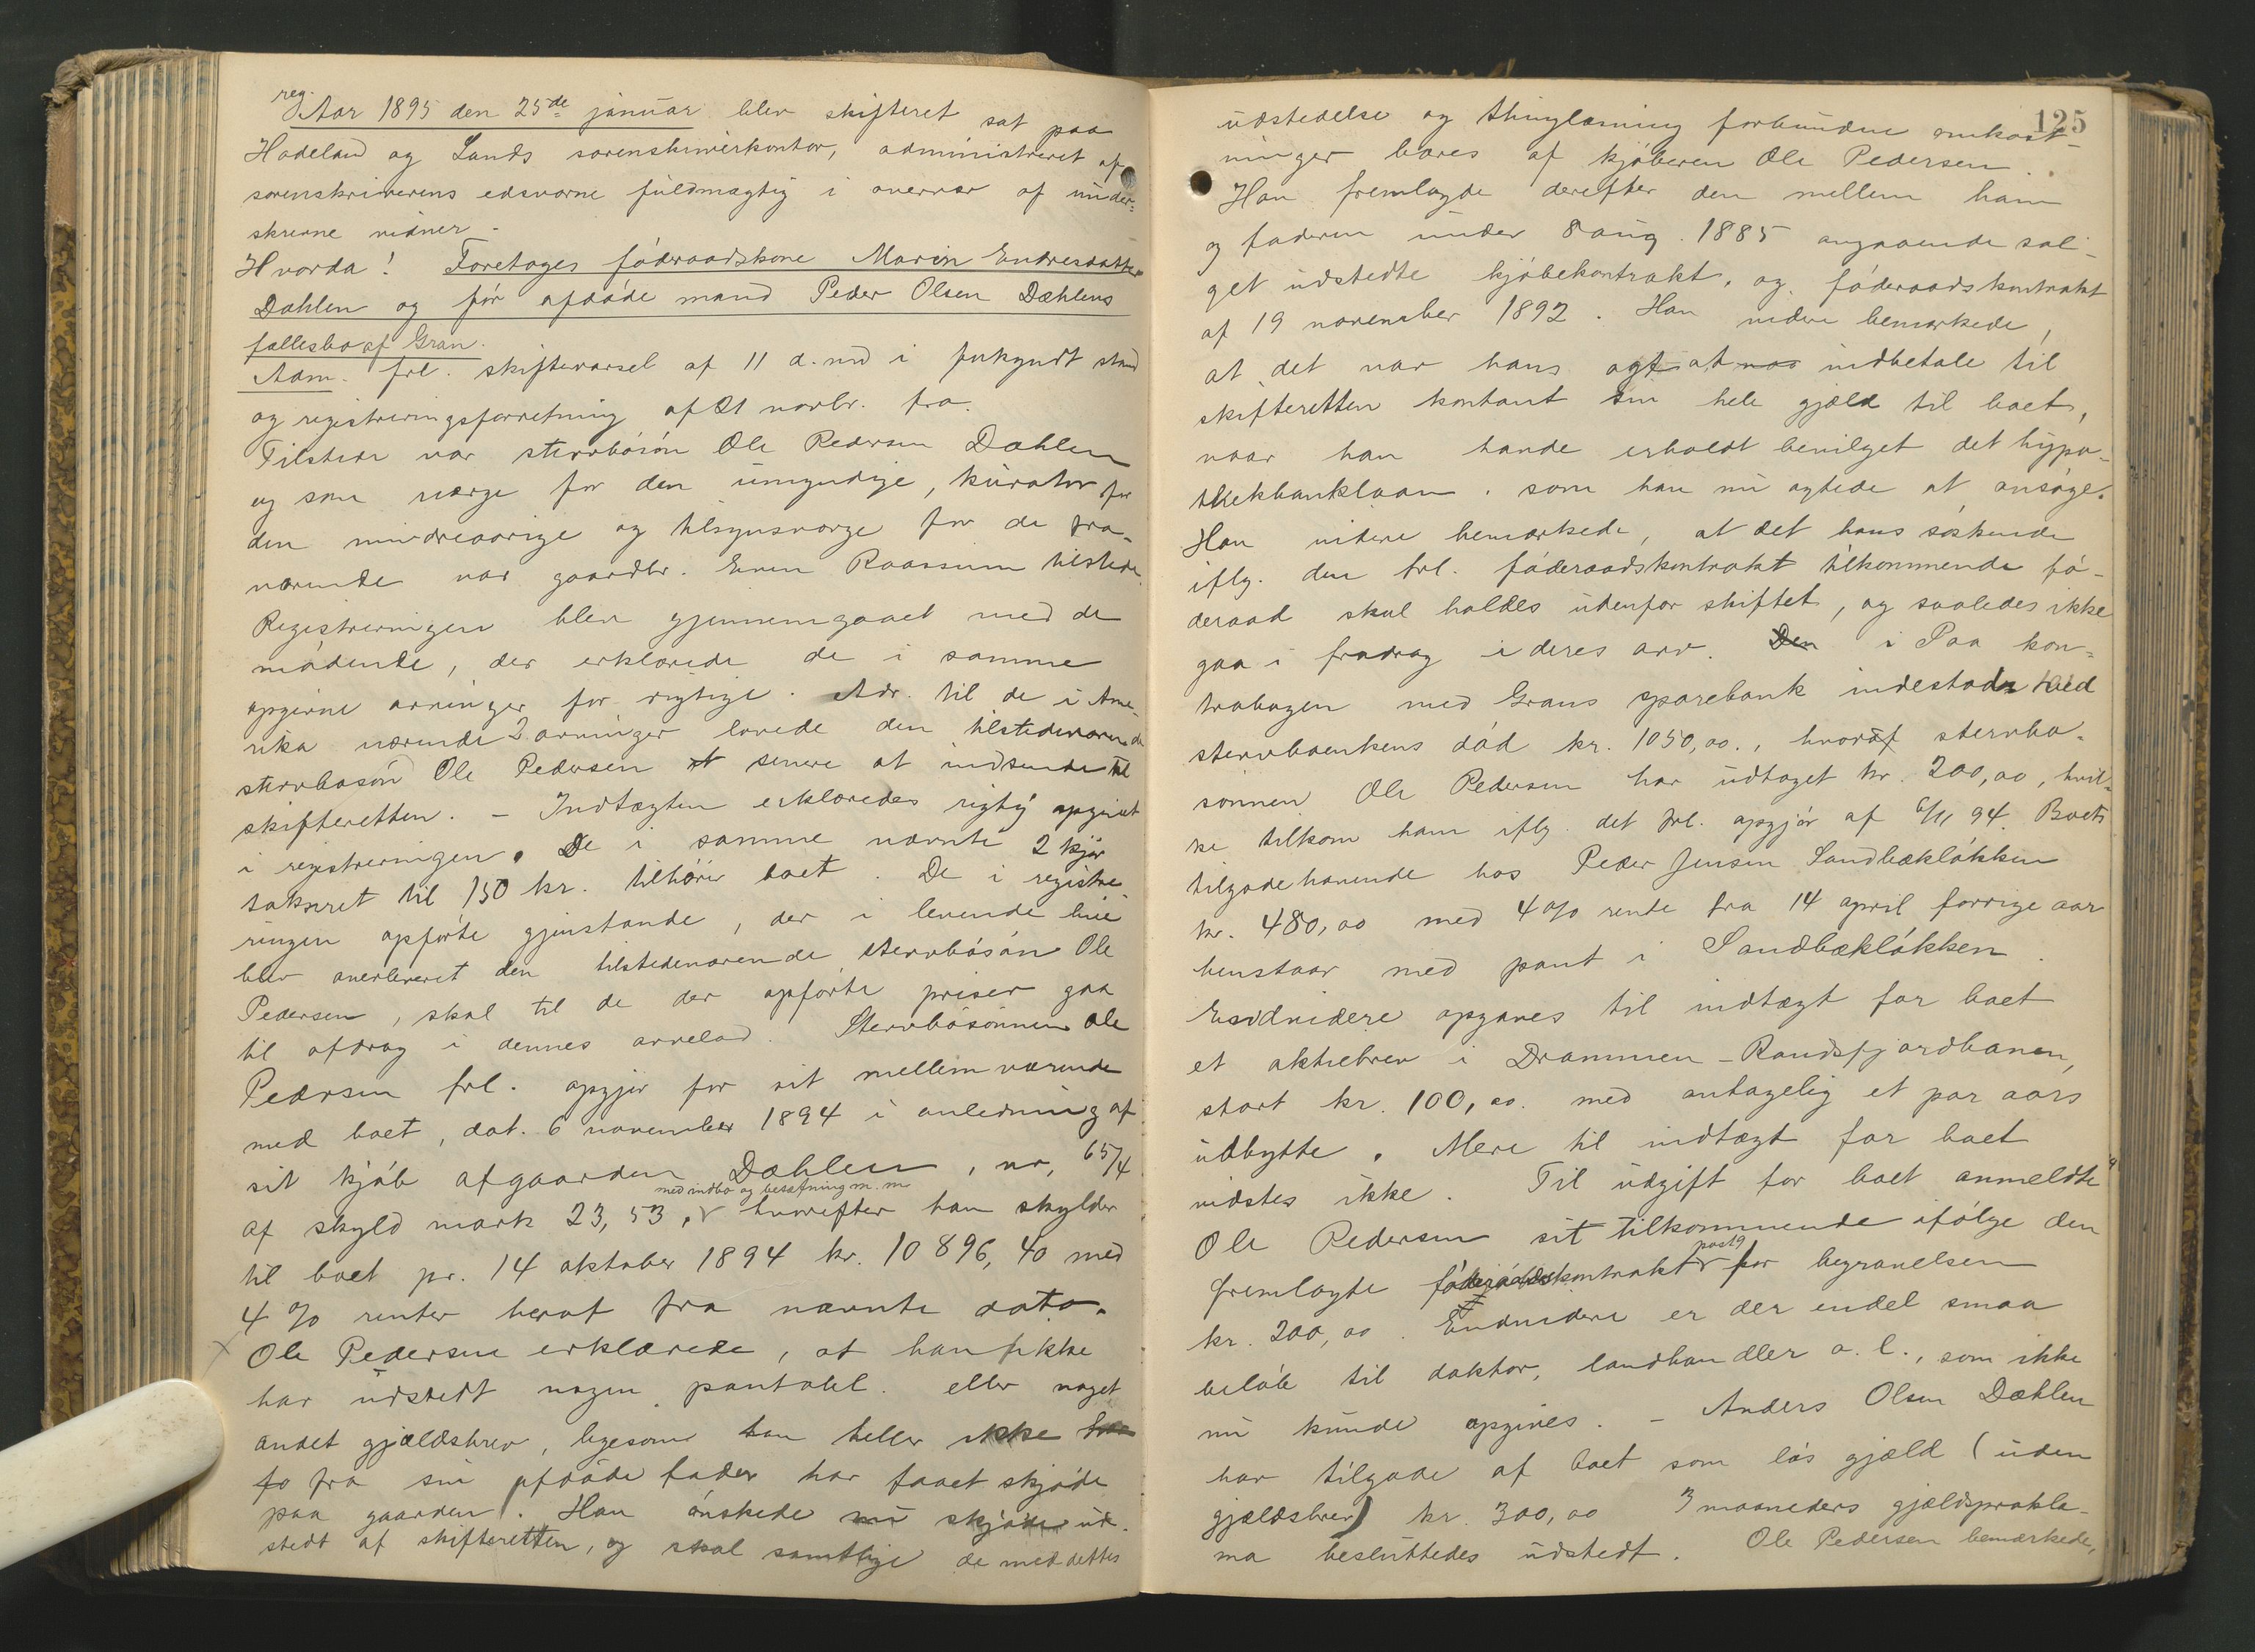 reg.
Aar 1895 den 25de januar blev skifteret sat paa
Hadeland og Lands sorenskriverkontor, administreret af
sorenskriverens edsvorne fuldmægtig i overvær af under-
skrevne vidner -
Hvorda! Foretages föderaadskone Marin Endresdatter
Dæhlen og för afdöde mand Peder Olsen Dæhlens
fællesbo af Gran.
Adm. frl. skiftevarsel af 11 d. md i forkyndt stand
og registreringsforretning af 21 novbr. f.a.
Tilstede var stervbösön Ole Pedersen Dæhlen
og som værge for den umyndige, kurator for
den mindreaarige og tilsynsværge for de fra-
værende var gaardbr. Even Raassum tilstede.
Registreringen blev gjennemgaaet med de
mödende, der erklærede de i samme
opgivne arvinger for rigtige. Adr. til de i Ame-
rika værende 2 arvinger lovede den tilstedeværende
stervbosön Ole Pedersen at senere at indsende til
skifteretten. - Indtægten erklæredes rigtig opgivet
i registreringen. De i samme nævnte 2 kjör
takseret til 150 kr. tilhörer boet. De i registre-
ringen opförte gjenstande, der i levende live
blev overleveret den tilstedeværende stervbösön Ole
Pedersen, skal til de der opförte priser gaa
til afdrag i dennes arvelod. Stervbösönnen Ole
Pedersen frl. opgjör for sit mellemværende
med boet, dat. 6 november 1894 i anledning af
sit kjöb af gaarden Dæhlen, nr, 65/4
med indbo og besætning m. m
af skyld mark 23,53, hvorefter han skylder
til boet pr. 14 oktober 1894 kr. 10896,40 med
4 % renter heraf fra nævnte dato.
x Ole Pedersen erklærede, at han ikke
har udstedt nogen pantobl. eller noget
andet gjældsbrev, ligesom han heller ikke
fra sin afdöde fader har faaet skjöde
paa gaarden. Han önskede nu skjöde ud-
stedt af skifteretten, og skal samtlige de med dettes
125
udstedelse og thinglæsning forbundne omkost-
ninger bæres af kjöberen Ole Pedersen.
Han fremlagde derefter den mellem ham
og faderen under 8 aug. 1885 angaaende sal-
get udstedte kjöbekontrakt, og föderaadskontrakt
af 19 november 1892. Han videre bemærkede,
at det var hans agt at indbetale til
skifteretten kontant sin hele gjæld til boet,
naar han havde erholdt bevilget det hypo-
thekbanklaan, som han nu agtede at ansöge.
Han videre bemærkede, at det hans söskende
iflg. den frl. föderaadskontrakt tilkommende fö-
deraad skal holdes udenfor skiftet, og saaledes ikke
gaa i fradrag i deres arv. Den i Paa kon-
trabogen med Grans sparebank indestod ved
stervboenkens död kr. 1050,00., hvoraf stervbo-
sönnen Ole Pedersen har udtaget kr. 200,00, hvil-
ke tilkom ham iflg. det frl. opgjör af 6/11 94. Boets
tilgodehavende hos Peder Jensen Sandbæklökken
kr. 480,00 med 4 % rente fra 14 april forrige aar
henstaar med pant i Sandbæklökken.
Endvidere opgaves til indtægt for boet
et aktiebrev i Drammen-Randsfjordbanen,
stort kr. 100,00. med antagelig et par aars
udbytte. Mere til indtægt for boet
vidstes ikke. Til udgift for boet anmeldte
Ole Pedersen sit tilkommende ifölge den
post 9
fremlagte kontrakt for begravelsen
kr. 200,00. Endvidere er der endel smaa
belöb til doktor, landhandler o. l., som ikke
nu kunde opgives. - Anders Olsen Dæhlen
har tilgode af boet som lös gjæld (uden
gjældsbrev) kr. 300,00 3 maaneders gjældsprokla-
ma besluttedes udstedt. Ole Pedersen bemærkede,